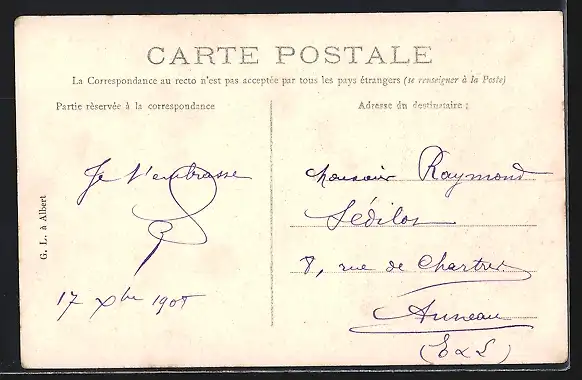 CARTE POSTALE
La Correspondance au recto n'est pas acceptée par tous les pays étrangers (se renseigner à la Poste)
Partie réservée à la correspondance
Adresse du destinataire :
G. L. à Albert
Je t'embrasse
17 Xbre 1905
Monsieur Raymond
Sédilot
8, rue de Chartres
Auneau
(E & L)